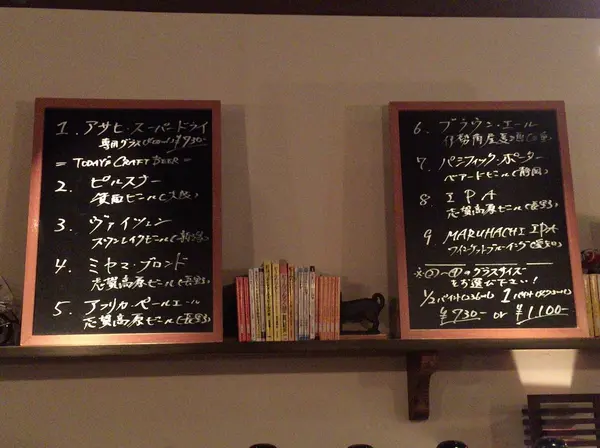 1. アサヒ・スーパードライ
専用グラス ¥930-
= TODAY'S CRAFT BEER =
2. ピルスナー
箕面ビール(大阪)
3. ヴァイツェン
スワンレイクビール(新潟)
4. ミヤマ・ブロンド
志賀高原ビール(長野)
5. アフリカ・ペールエール
志賀高原ビール(長野)
6. ブラウン・エール
伊勢角屋麦酒(三重)
7. パシフィック・ポーター
ベアードビール(静岡)
8. IPA
志賀高原ビール(長野)
9. MARUHACHI IPA
ワイマーケットブルーイング(愛知)
※②〜⑨のグラスサイズ
をお選び下さい!
1/2パイント 1パイント
¥930- or ¥1,100-